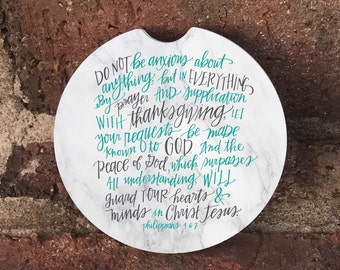 DO NOT be anxious about
anything, but in EVERYTHING
By prayer AND supplication
WITH thanksgiving LET
your requests be made
known to GOD. And the
peace of God, which surpasses
All understanding, WILL
guard YOUR hearts &
minds in Christ Jesus
philippians 4:6-7